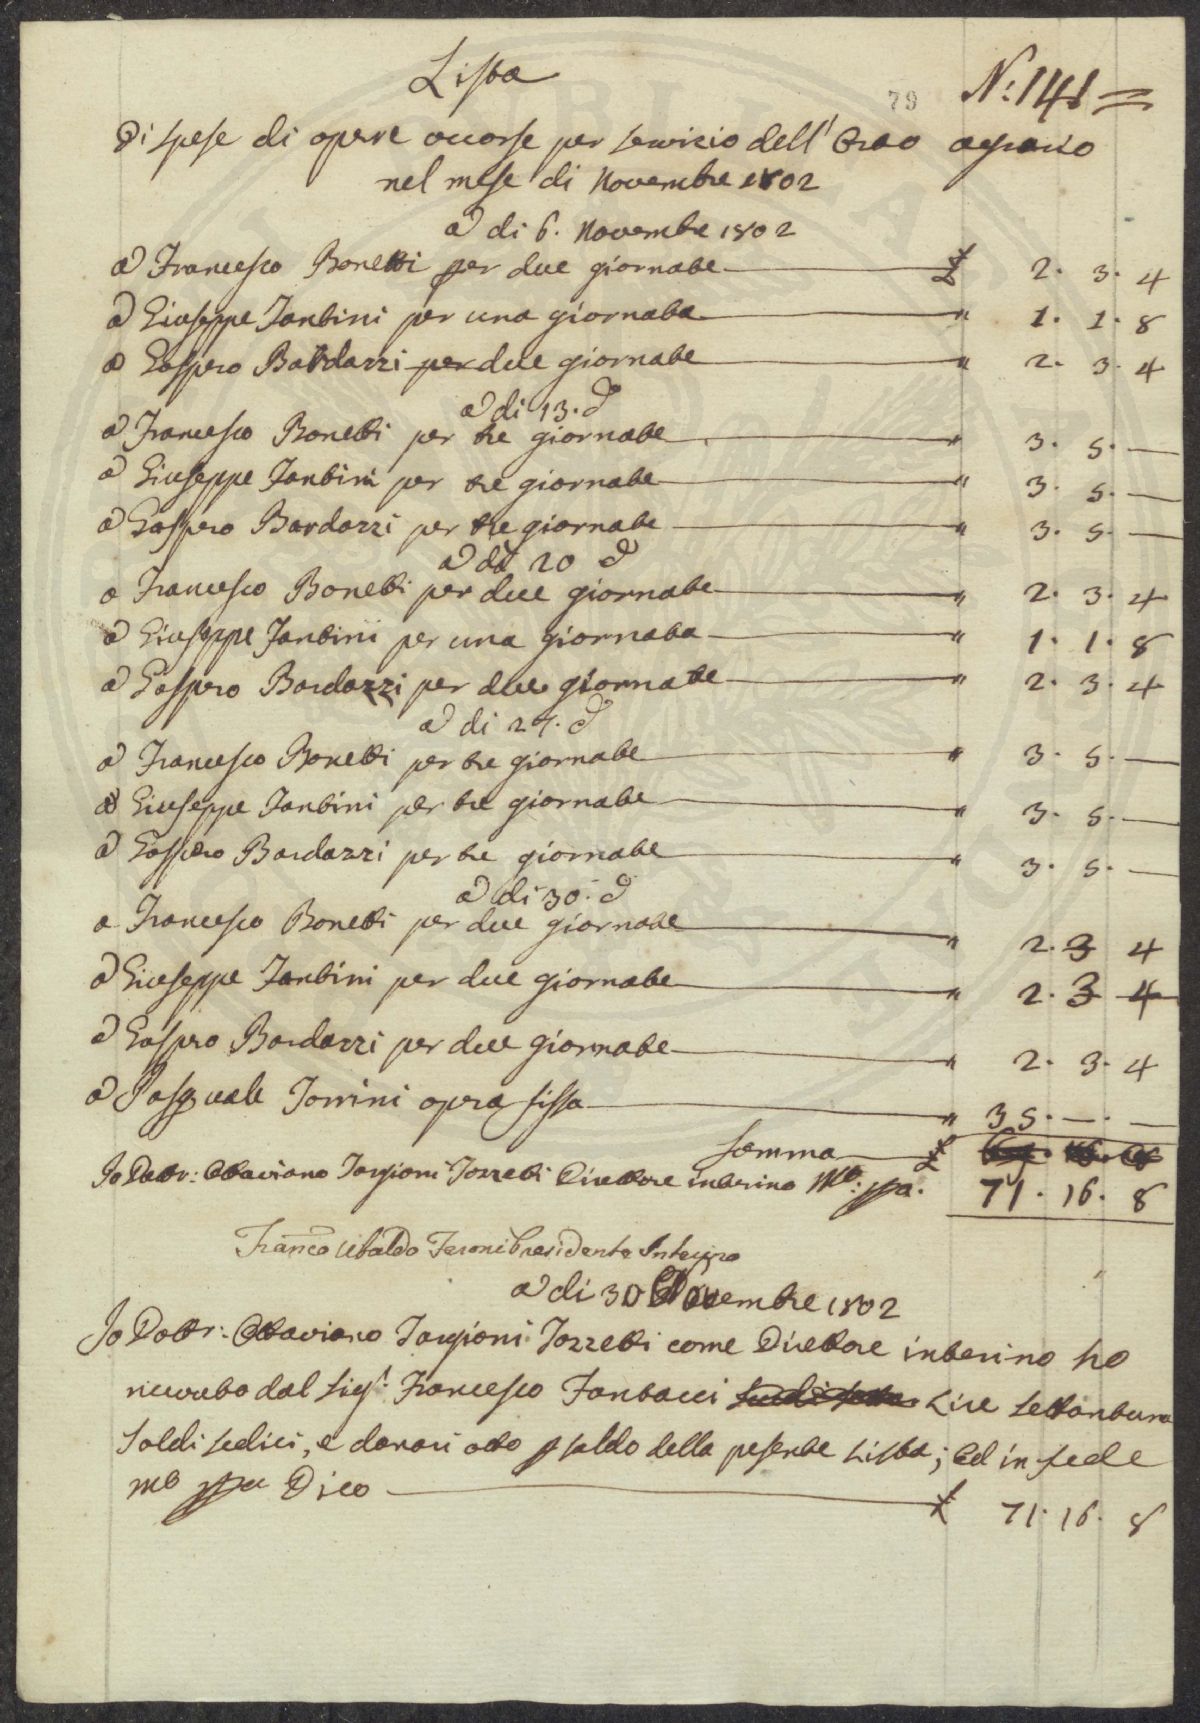 Lista
79
N.: 141 =
Di spese di opere occorse per servizio dell' Orto agrario
nel mese di Novembre 1802
A di 6. Novembre 1802
A Francesco Bonetti per due giornate £ 2. 3. 4
A Giuseppe Tantini per una giornata " 1. 1. 8
A Gaspero Bardazzi per due giornate " 2. 3. 4
A di 13. d
A Francesco Bonetti per tre giornate " 3. 5. —
A Giuseppe Tantini per tre giornate " 3. 5. —
A Gaspero Bardazzi per tre giornate " 3. 5. —
A di 20 d
a Francesco Bonetti per due giornate " 2. 3. 4
A Giuseppe Tantini per una giornata " 1. 1. 8
A Gaspero Bardazzi per due giornate " 2. 3. 4
A di 27. d
A Francesco Bonetti per tre giornate " 3. 5. —
A Giuseppe Tantini per tre giornate " 3. 5. —
A Gaspero Bardazzi per tre giornate " 3. 5. —
A di 30. d
a Francesco Bonetti per due giornate " 2. 3 4
A Giuseppe Tantini per due giornate " 2. 3 4
A Gaspero Bardazzi per due giornate " 2. 3. 4
A Pasquale Torrini opera fissa " 35. —. —
Somma £
Io Dottr: Ottaviano Targioni Tozzetti Direttore interino Mo: ppa. 71. 16. 8
Franco Ubaldo Feroni Presidente Interino
A di 30 Novembre 1802
Io Dottr: Ottaviano Targioni Tozzetti come Direttore interino ho
ricevuto dal Sigr: Francesco Tantacci Lire settantuna
Soldi sedici, e danari otto p saldo della presente Lista; Ed in fede
mo ppa Dico £ 71. 16. 8